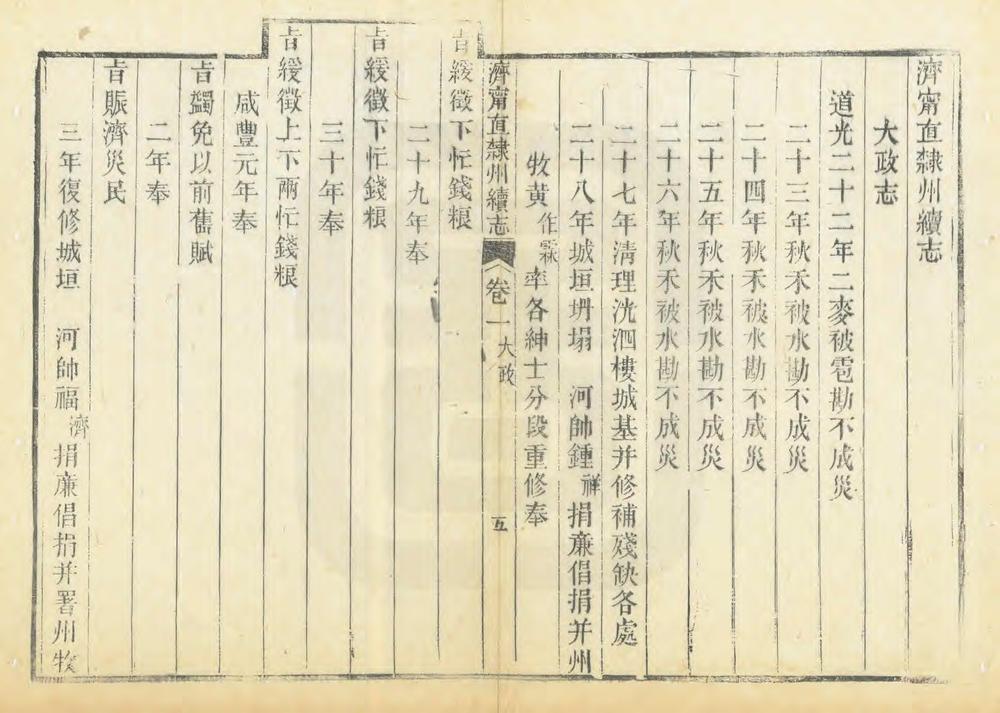 濟甯直隸州續志
大政志
道光二十二年二麥被雹勘不成災
二十三年秋禾被水勘不成災
二十四年秋禾被水勘不成災
二十五年秋禾被水勘不成災
二十六年秋禾被水勘不成災
二十七年清理洸泗樓城基并修補殘缺各處
二十八年城垣坍塌 河帥鍾祥捐廉倡捐并州
牧黃作霖率各紳士分段重修奉
濟甯直隸州續志 卷一 大政 五
旨緩徵下忙錢粮
二十九年奉
旨緩徵下忙錢粮
三十年奉
旨緩徵上下兩忙錢粮
咸豐元年奉
旨蠲免以前舊賦
二年奉
旨賑濟災民
三年復修城垣 河帥福濟捐廉倡捐并署州牧